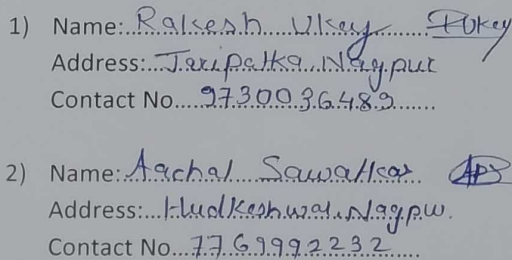 1) Name:..Rakesh Ukey.......RUkey
Address:..Jaripatka..Nagpur
Contact No....9730036489.......
2) Name:.Aachal Sawalkar APS
Address:...Hudkeshwar.Nagpur.
Contact No...7769992232.......